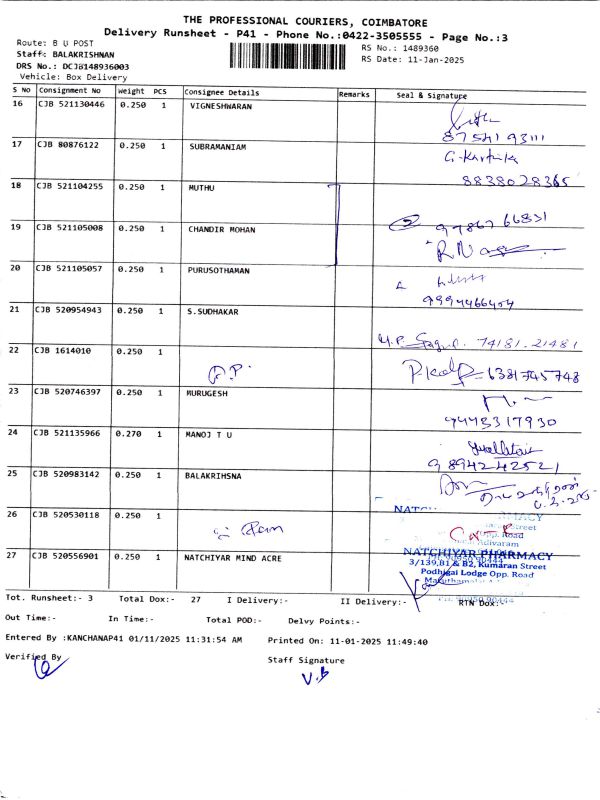 THE PROFESSIONAL COURIERS, COIMBATORE
Delivery Runsheet - P41 - Phone No.:0422-3505555 - Page No.:3
Route: B U POST
RS No.: 1489360
Staff: BALAKRISHNAN
RS Date: 11-Jan-2025
DRS No.: DCJB148936003
Vehicle: Box Delivery
S No Consignment No Weight PCS Consignee Details Remarks Seal & Signature
16 CJB 521130446 0.250 1 VIGNESHWARAN
8754193111
17 CJB 80876122 0.250 1 SUBRAMANIAM G-Karthika
8838028365
18 CJB 521104255 0.250 1 MUTHU
97867 66831
19 CJB 521105008 0.250 1 CHANDIR MOHAN
20 CJB 521105057 0.250 1 PURUSOTHAMAN
9994466404
21 CJB 520954943 0.250 1 S.SUDHAKAR
74181.21481
22 CJB 1614010 0.250 1
6381745748
23 CJB 520746397 0.250 1 MURUGESH
9445317930
24 CJB 521135966 0.270 1 MANOJ T U
9894242521
25 CJB 520983142 0.250 1 BALAKRIHSNA
26 CJB 520530118 0.250 1
27 CJB 520556901 0.250 1 NATCHIYAR MIND ACRE
NATCHIYAR PHARMACY
3/139,B1 & B2, Kumaran Street
Podhigai Lodge Opp. Road
Tot. Runsheet:- 3 Total Dox:- 27 I Delivery:- II Delivery:- RTN Dox:-
Out Time:- In Time:- Total POD:- Delvy Points:-
Entered By :KANCHANAP41 01/11/2025 11:31:54 AM Printed On: 11-01-2025 11:49:40
Verified By
Staff Signature
V.B